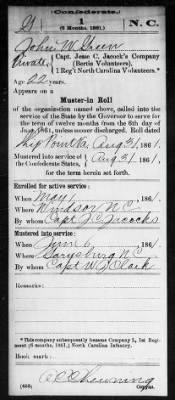 (Confederate.)
G 1 N. C.
(6 Months, 1861.)
John W. Green
Private, Capt. Jesse C. Jacock's Company
(Bertie Volunteers),
1 Reg't North Carolina Volunteers.*
Age 22 years.
Appears on a
Muster-in Roll
of the organization named above, called into the
service of the State by the Governor to serve for
the term of twelve months from the 6th day of
June, 1861, unless sooner discharged. Roll dated
Ship Point Va. Aug 31, 1861.
Mustered into service of
the Confederate States, Aug 31, 1861.
for the term herein set forth.
Enrolled for active service:
When May 1, 1861.
Where Windsor N.C.
By whom Capt J C Jacocks
Mustered into service:
When June 6, 1861.
Where Garysburg N.C.
By whom Capt W J Clark
Remarks:
*This company subsequently became Company L, 1st Regiment
(6 months, 1861,) North Carolina Infantry.
Book mark:
Chewning
Copyist.